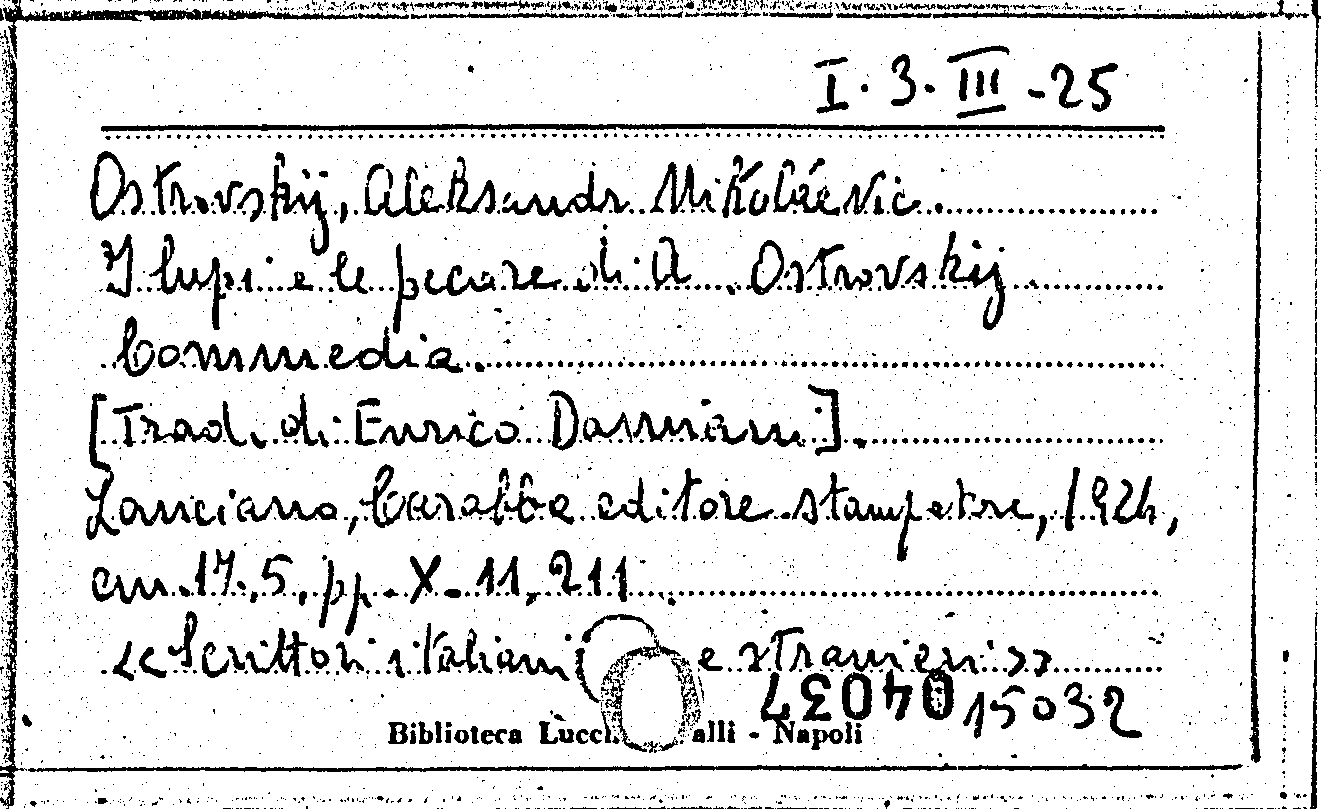 I. 3. III - 25
Ostrovskij, Aleksandr Nikoláevic.
I lupi e le pecore di A. Ostrovskij
Commedia.
[Trad. di Enrico Damiani].
Lanciano, Carabba editore stampatore, 1924,
cm. 17,5, pp. X-11, 211.
<<Scrittori italiani e stranieri>>
04037 15032
Biblioteca Lucch alli - Napoli